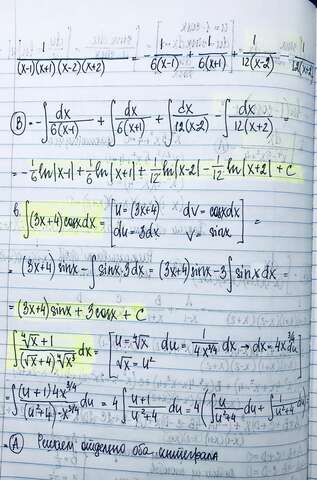 1/((x-1)(x+1)(x-2)(x+2)) = -1/(6(x-1)) + 1/(6(x+1)) + 1/(12(x-2)) - 1/(12(x+2))
Ⓑ = -∫ dx/(6(x-1)) + ∫ dx/(6(x+1)) + ∫ dx/(12(x-2)) - ∫ dx/(12(x+2)) =
= -1/6 ln|x-1| + 1/6 ln|x+1| + 1/12 ln|x-2| - 1/12 ln|x+2| + C
в. ∫(3x+4)cosxdx = [u=(3x+4) dv=cosxdx
du=3dx v=sinx] =
= (3x+4)sinx - ∫sinx·3dx = (3x+4)sinx - 3∫sinxdx =
= (3x+4)sinx + 3cosx + C
∫ (∜x + 1)/((√x + 4)∜x³) dx = [u=∜x du = 1/(4x^(3/4)) dx → dx = 4x^(3/4) du
√x = u²]
= ∫ ((u+1)4x^(3/4))/((u²+4)·x^(3/4)) du = 4∫ (u+1)/(u²+4) du = 4(∫ u/(u²+4) du + ∫ 1/(u²+4) du)
= Ⓐ Решаем отделено оба интеграла